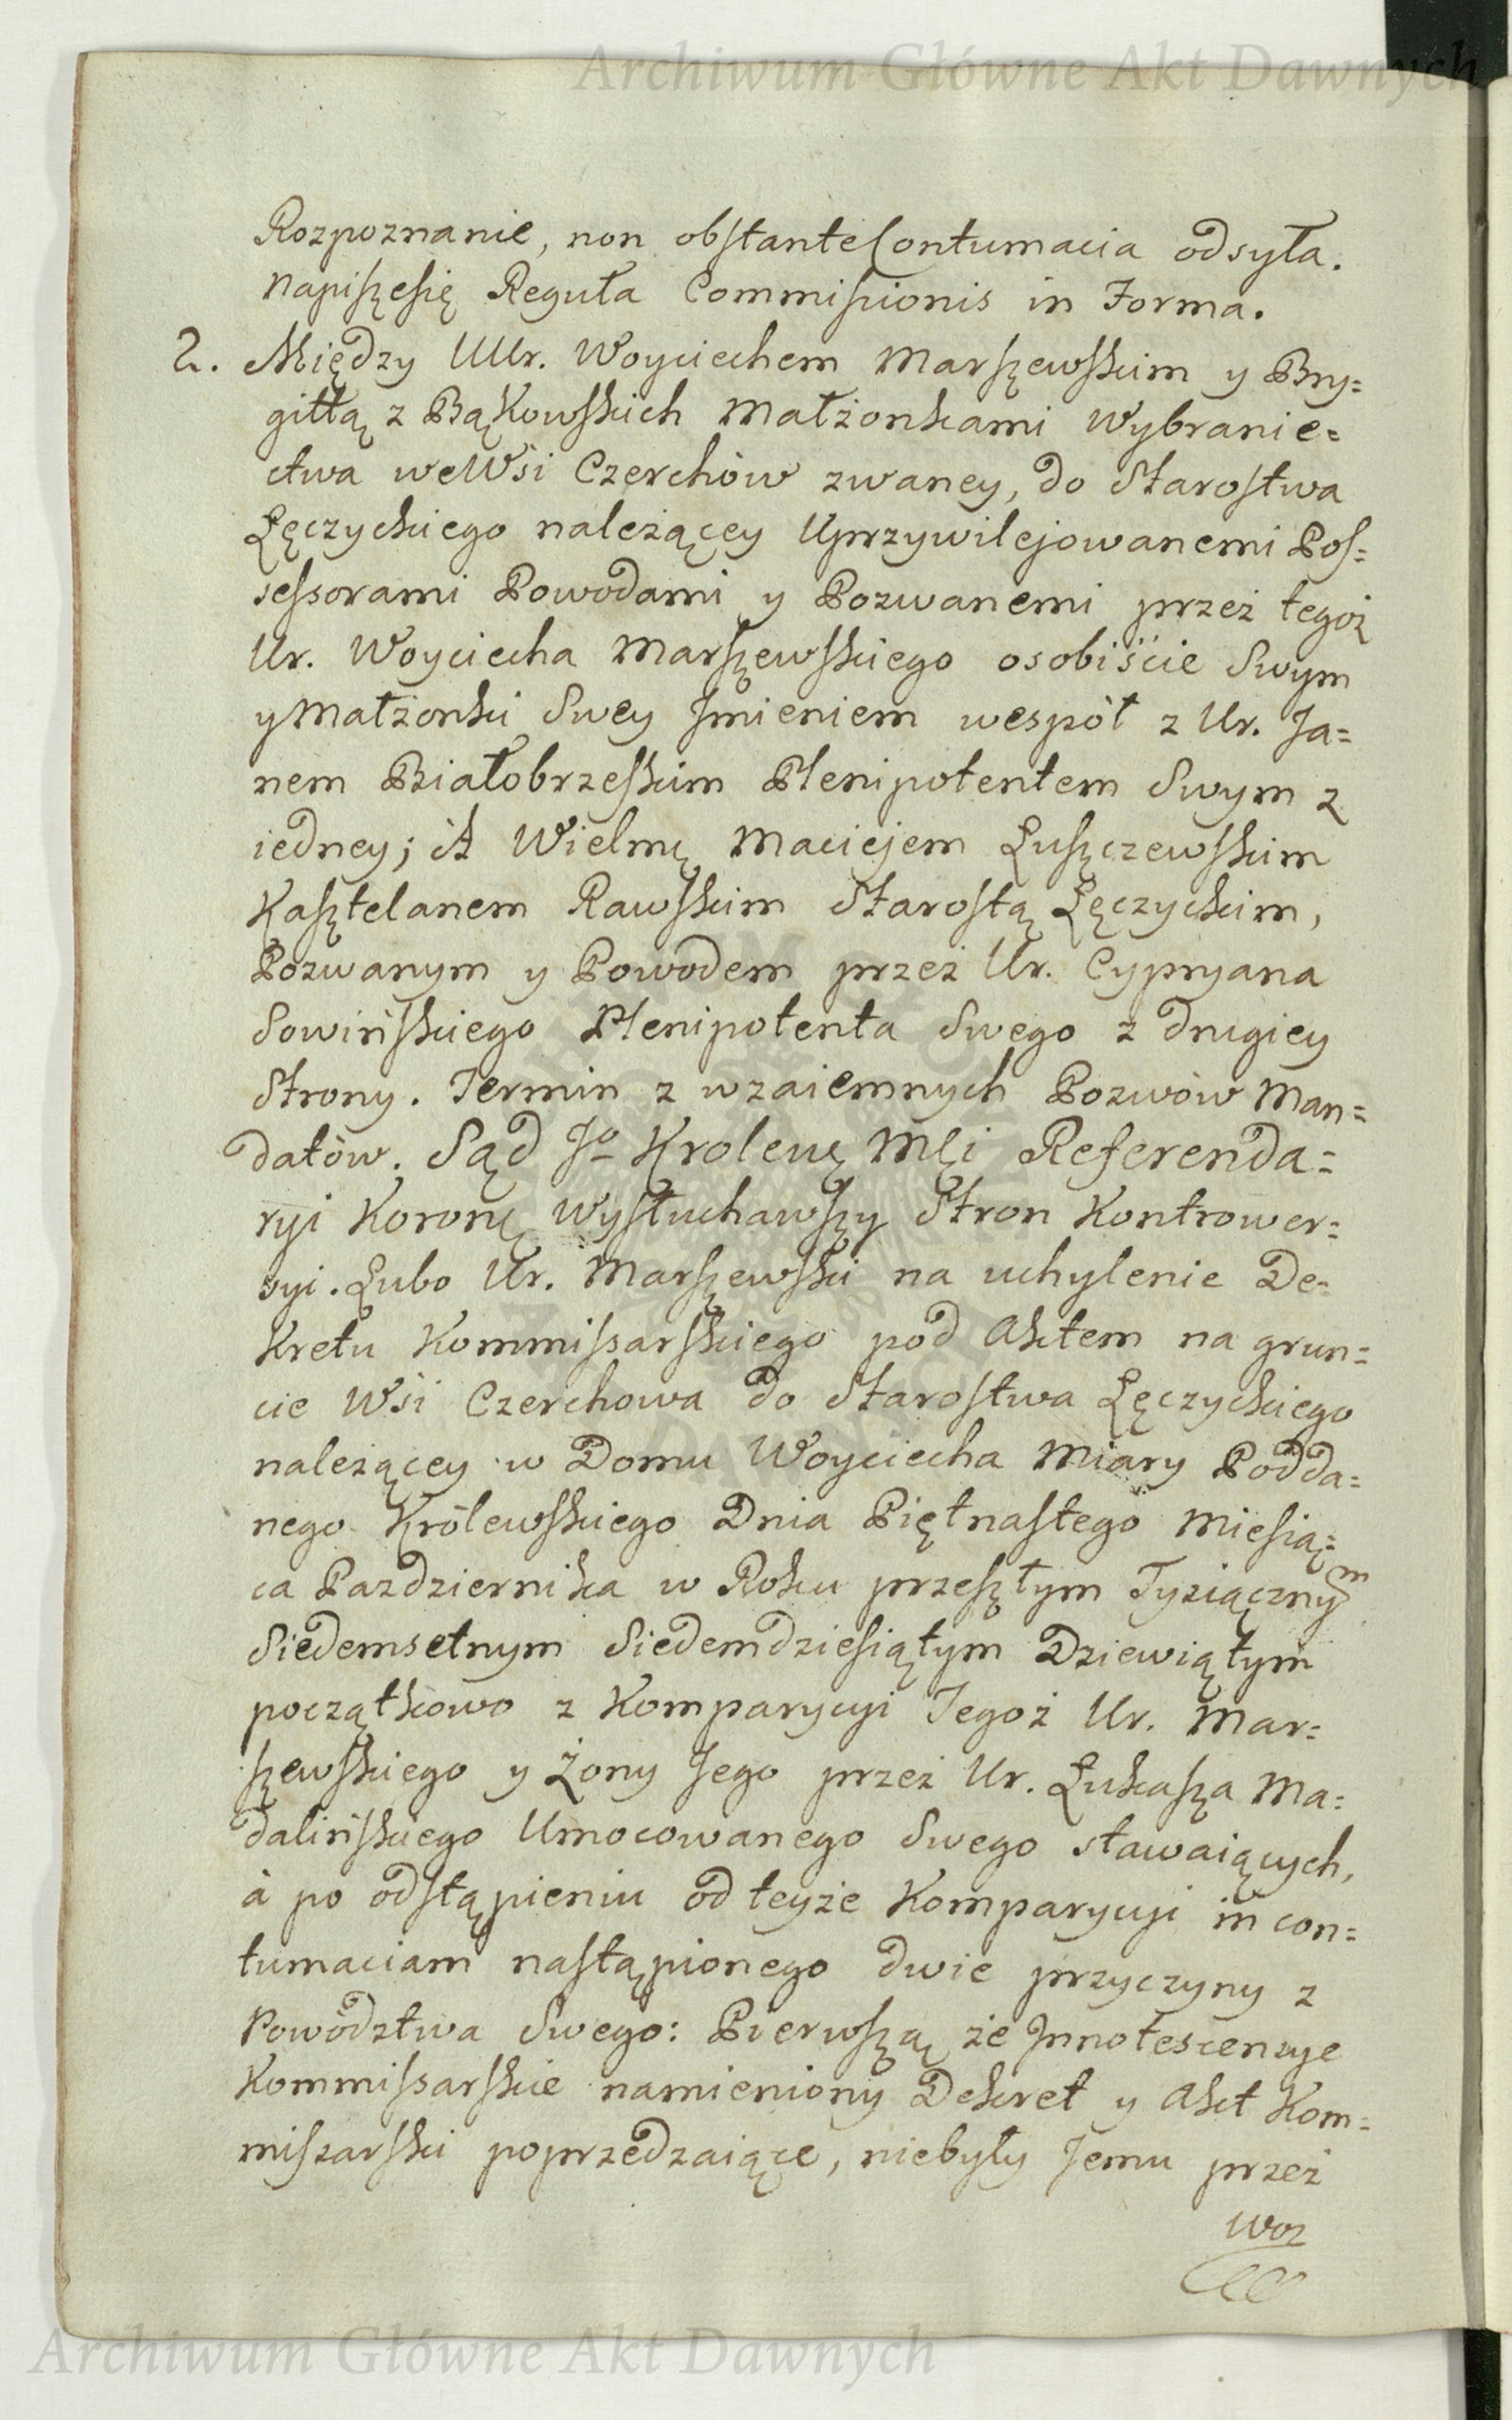 Archiwum Główne Akt Dawnych
Rozpoznanie, non obstante Contumacia odsyła.
napiszesię Reguła Commissionis in Forma.
2. Między UUr. Woyciechem Marszewskim y Bry=
gittą z Bąkowskich Małżonkami Wybranie=
ctwa weWsi Czerchów zwaney, do Starostwa
Łęczyckiego należącey Uprzywilejowanemi Pos=
sessorami Powodami y Pozwanemi przez tegoż
Ur. Woyciecha Marszewskiego osobiście Swym
y Małżonki Swey Imieniem wespół z Ur. Ja=
nem Białobrzeskim Plenipotentem Swym z
iedney; A Wielmę Maciejem Łuszczewskim
Kasztelanem Rawskim Starostą Łęczyckim,
Pozwanym y Powodem przez Ur. Cypryana
Sowińskiego Plenipotenta Swego z drugiey
Strony. Termin z wzaiemnych Pozwów Man=
datów. Sąd Jo Krolewę Męi Referenda=
ryi Koronę Wysłuchawszy Stron Kontrower=
syi. Lubo Ur. Marszewski na uchylenie De=
kretu Kommissarskiego pod Aktem na grun=
cie Wsi Czerchowa do Starostwa Łęczyckiego
należącey w Domu Woyciecha Miary Podda=
nego Królewskiego Dnia Piętnastego Miesią=
ca Pazdziernika w Roku przeszłym Tysiącznym
Siedemsetnym Siedemdziesiątym Dziewiątym
początkowo z Komparycyi Tegoż Ur. Mar=
szewskiego y Żony Jego przez Ur. Łukasza Ma=
dalińskiego Umocowanego Swego stawaiących,
à po odstąpieniu od teyże Komparycyi in con=
tumaciam nastąpionego dwie przyczyny z
Powództwa Swego: Pierwszą że Innotescencye
Kommissarskie namieniony Dekret y Akt Kom=
missarski poprzedzaiące, niebyły Jemu przez
Woz
Archiwum Główne Akt Dawnych